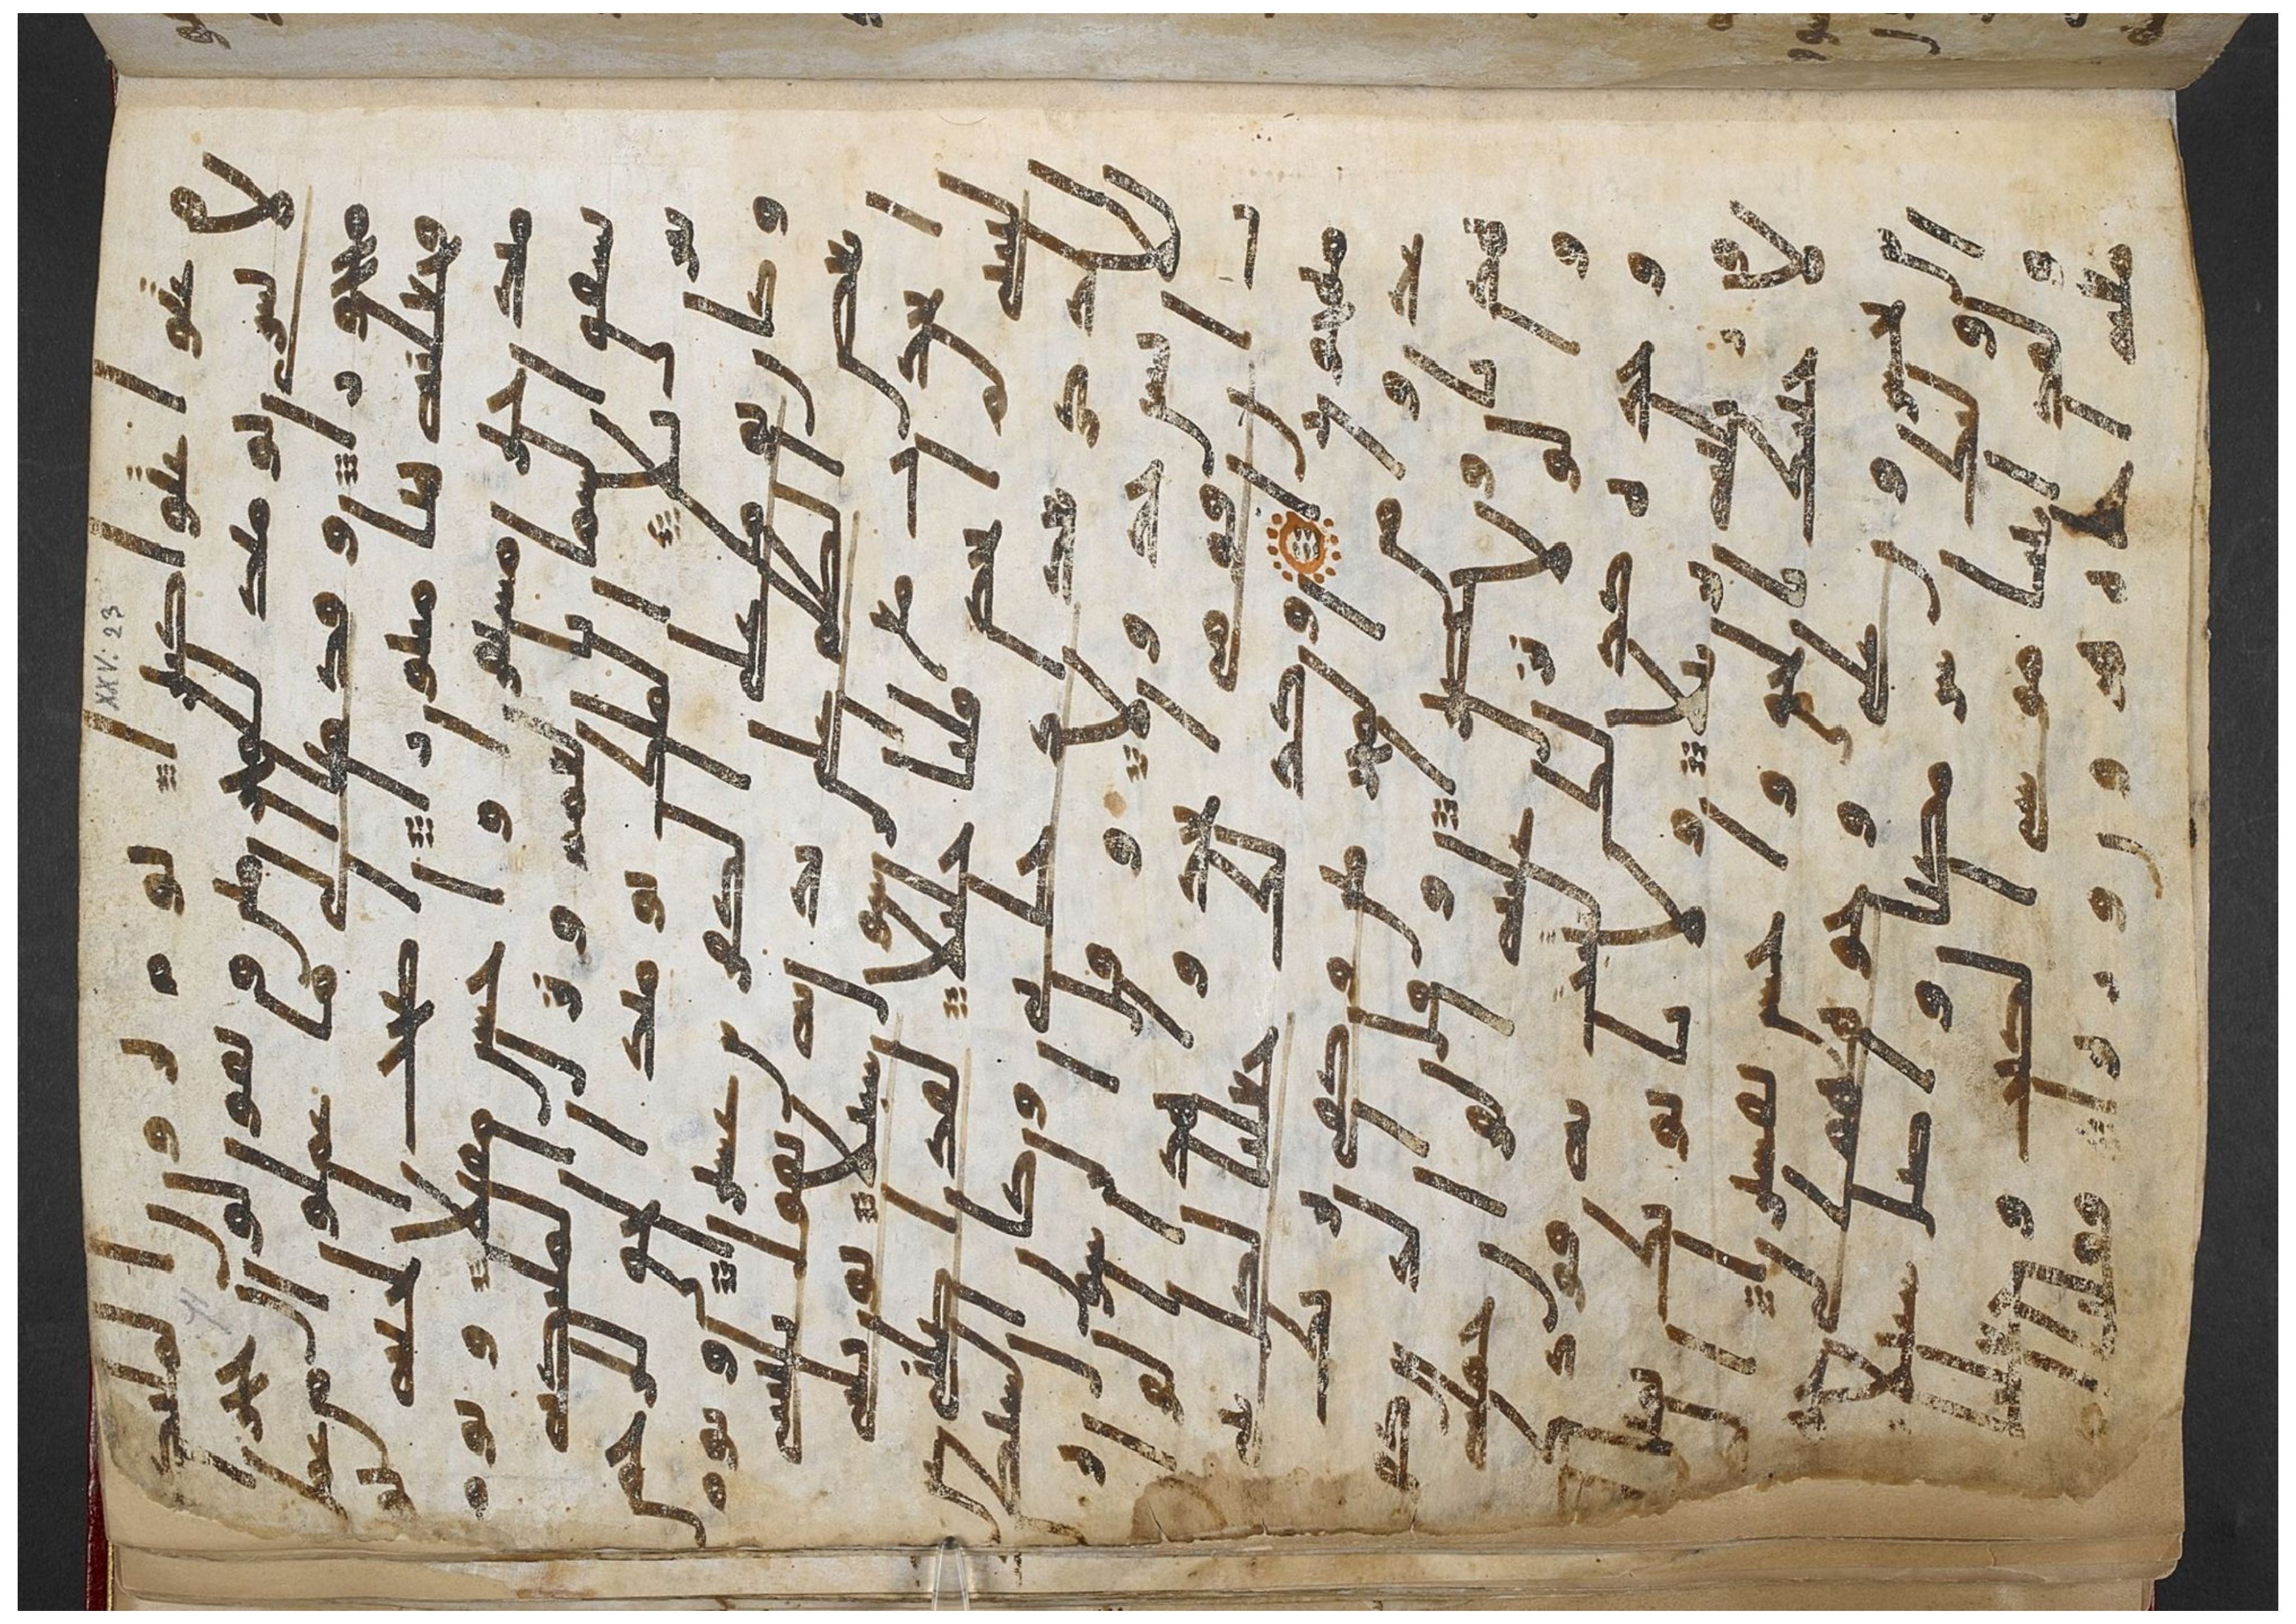 م وعتو عتوا كبيرا يوم يرون الملئكة
لا بشرى يومئذ للمجرمين ويقولون حجرا
محجورا وقدمنا الى ما عملوا من عمل
فجعلنه هبا منثورا اصحب الجنة
يومئذ خير مستقرا واحسن مقيلا ويوم
تشقق السما بالغمم ونزل الملئكة
تنزيلا الملك يومئذ الحق للرحمن
وكان يوما على الكفرين عسيرا ويوم
يعض الظلم على يديه يقول يليتنى
اتخذت مع الرسول سبيلا يويلتى ليتنى
لم اتخذ فلنا خليلا لقد اضلنى
عن الذكر بعد اذ جانى وكان الشيطن
للانسن خذولا وقال الرسول يرب
ان قومى اتخذوا هذا القران
مهجورا وكذلك جعلنا لكل
نبى عدوا من المجرمين وكفى
بربك هاديا ونصيرا وقال الذين
كفروا لولا نزل عليه القران جملة
وحدة كذلك لنثبت به فوادك
ورتلنه ترتيلا ولا ياتونك
بمثل الا جئنك بالحق واحسن
تفسيرا الذين يحشرون على وجوههم
الى جهنم اولئك شر مكانا واضل سبيلا
ولقد اتينا موسى الكتب وجعلنا
معه اخاه هرون وزيرا فقلنا
XXV: 23